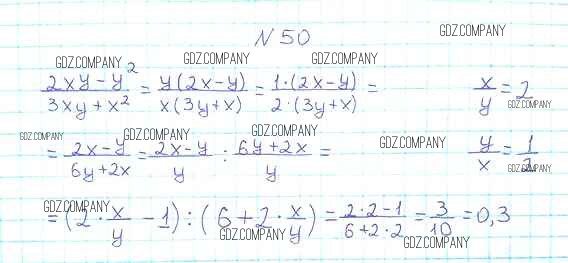 N 50
GDZ.COMPANY
GDZ.COMPANY GDZ.COMPANY GDZ.COMPANY
(2xy - y²)/(3xy + x²) = y(2x-y)/x(3y+x) = 1·(2x-y)/2·(3y+x) = x/y = 2
GDZ.COMPANY
GDZ.COMPANY GDZ.COMPANY GDZ.COMPANY GDZ.COMPANY
= (2x-y)/(6y+2x) = (2x-y)/y : (6y+2x)/y = y/x = 1/2
GDZ.COMPANY
GDZ.COMPANY
= (2·x/y - 1) : (6 + 2·x/y) = (2·2-1)/(6+2·2) = 3/10 = 0,3
GDZ.COMPANY GDZ.COMPANY